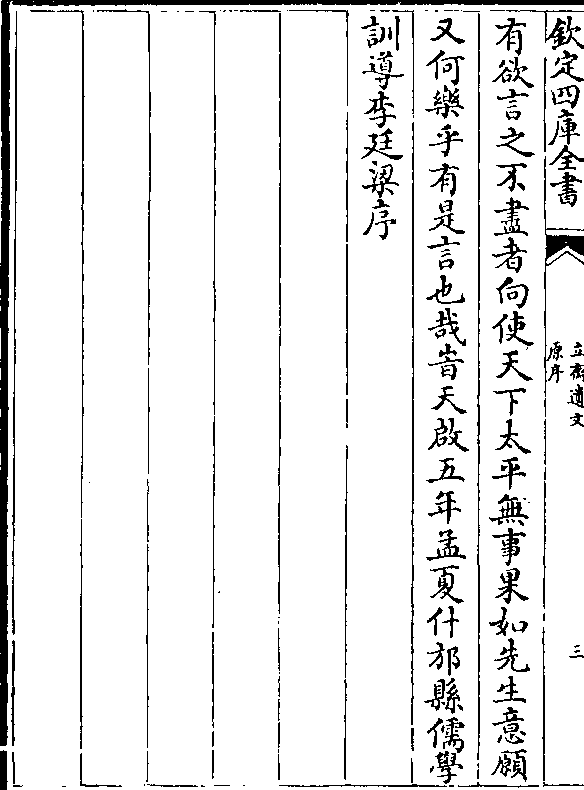 欽定四庫全書
立齋遺文
原序
三
有欲言之不盡者向使天下太平無事果如先生意願
又何樂乎有是言也哉旹天啟五年孟夏什邡縣儒學
訓導李廷梁序